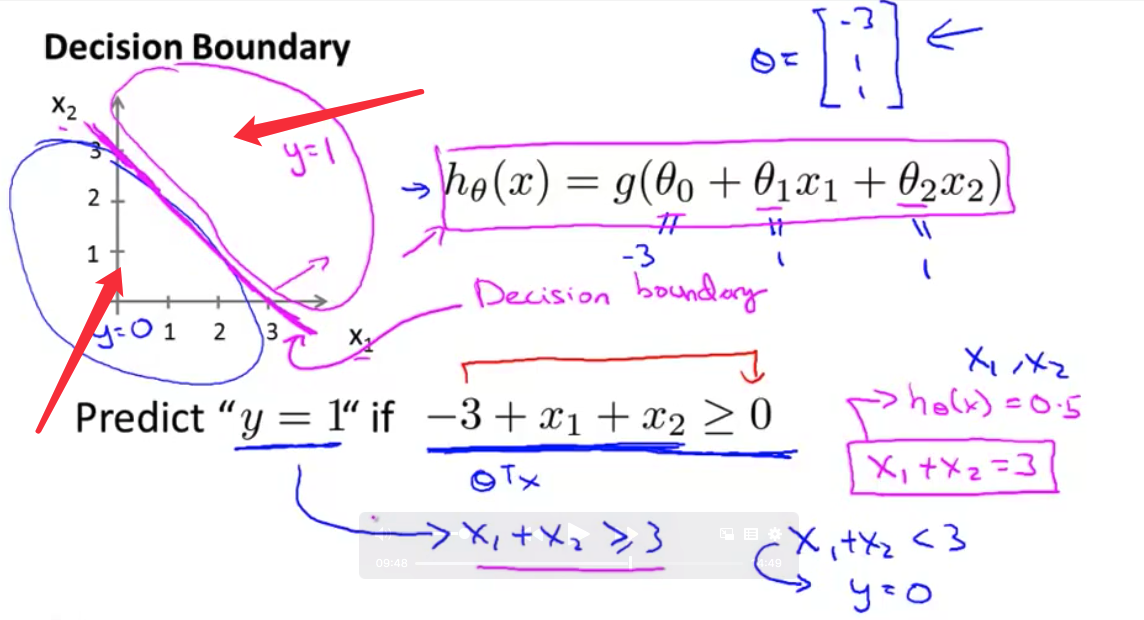 Decision Boundary
θ = [-3 1 1]
x₂
3
2
1
y=1
y=0 1 2 3 x₁
h_θ(x) = g(θ₀ + θ₁x₁ + θ₂x₂)
-3 1 1
Decision boundary
Predict “y = 1“ if −3 + x₁ + x₂ ≥ 0
θᵀx
x₁, x₂
h_θ(x) = 0.5
x₁ + x₂ = 3
x₁ + x₂ ≥ 3
x₁ + x₂ < 3
y = 0
09:48
4:49